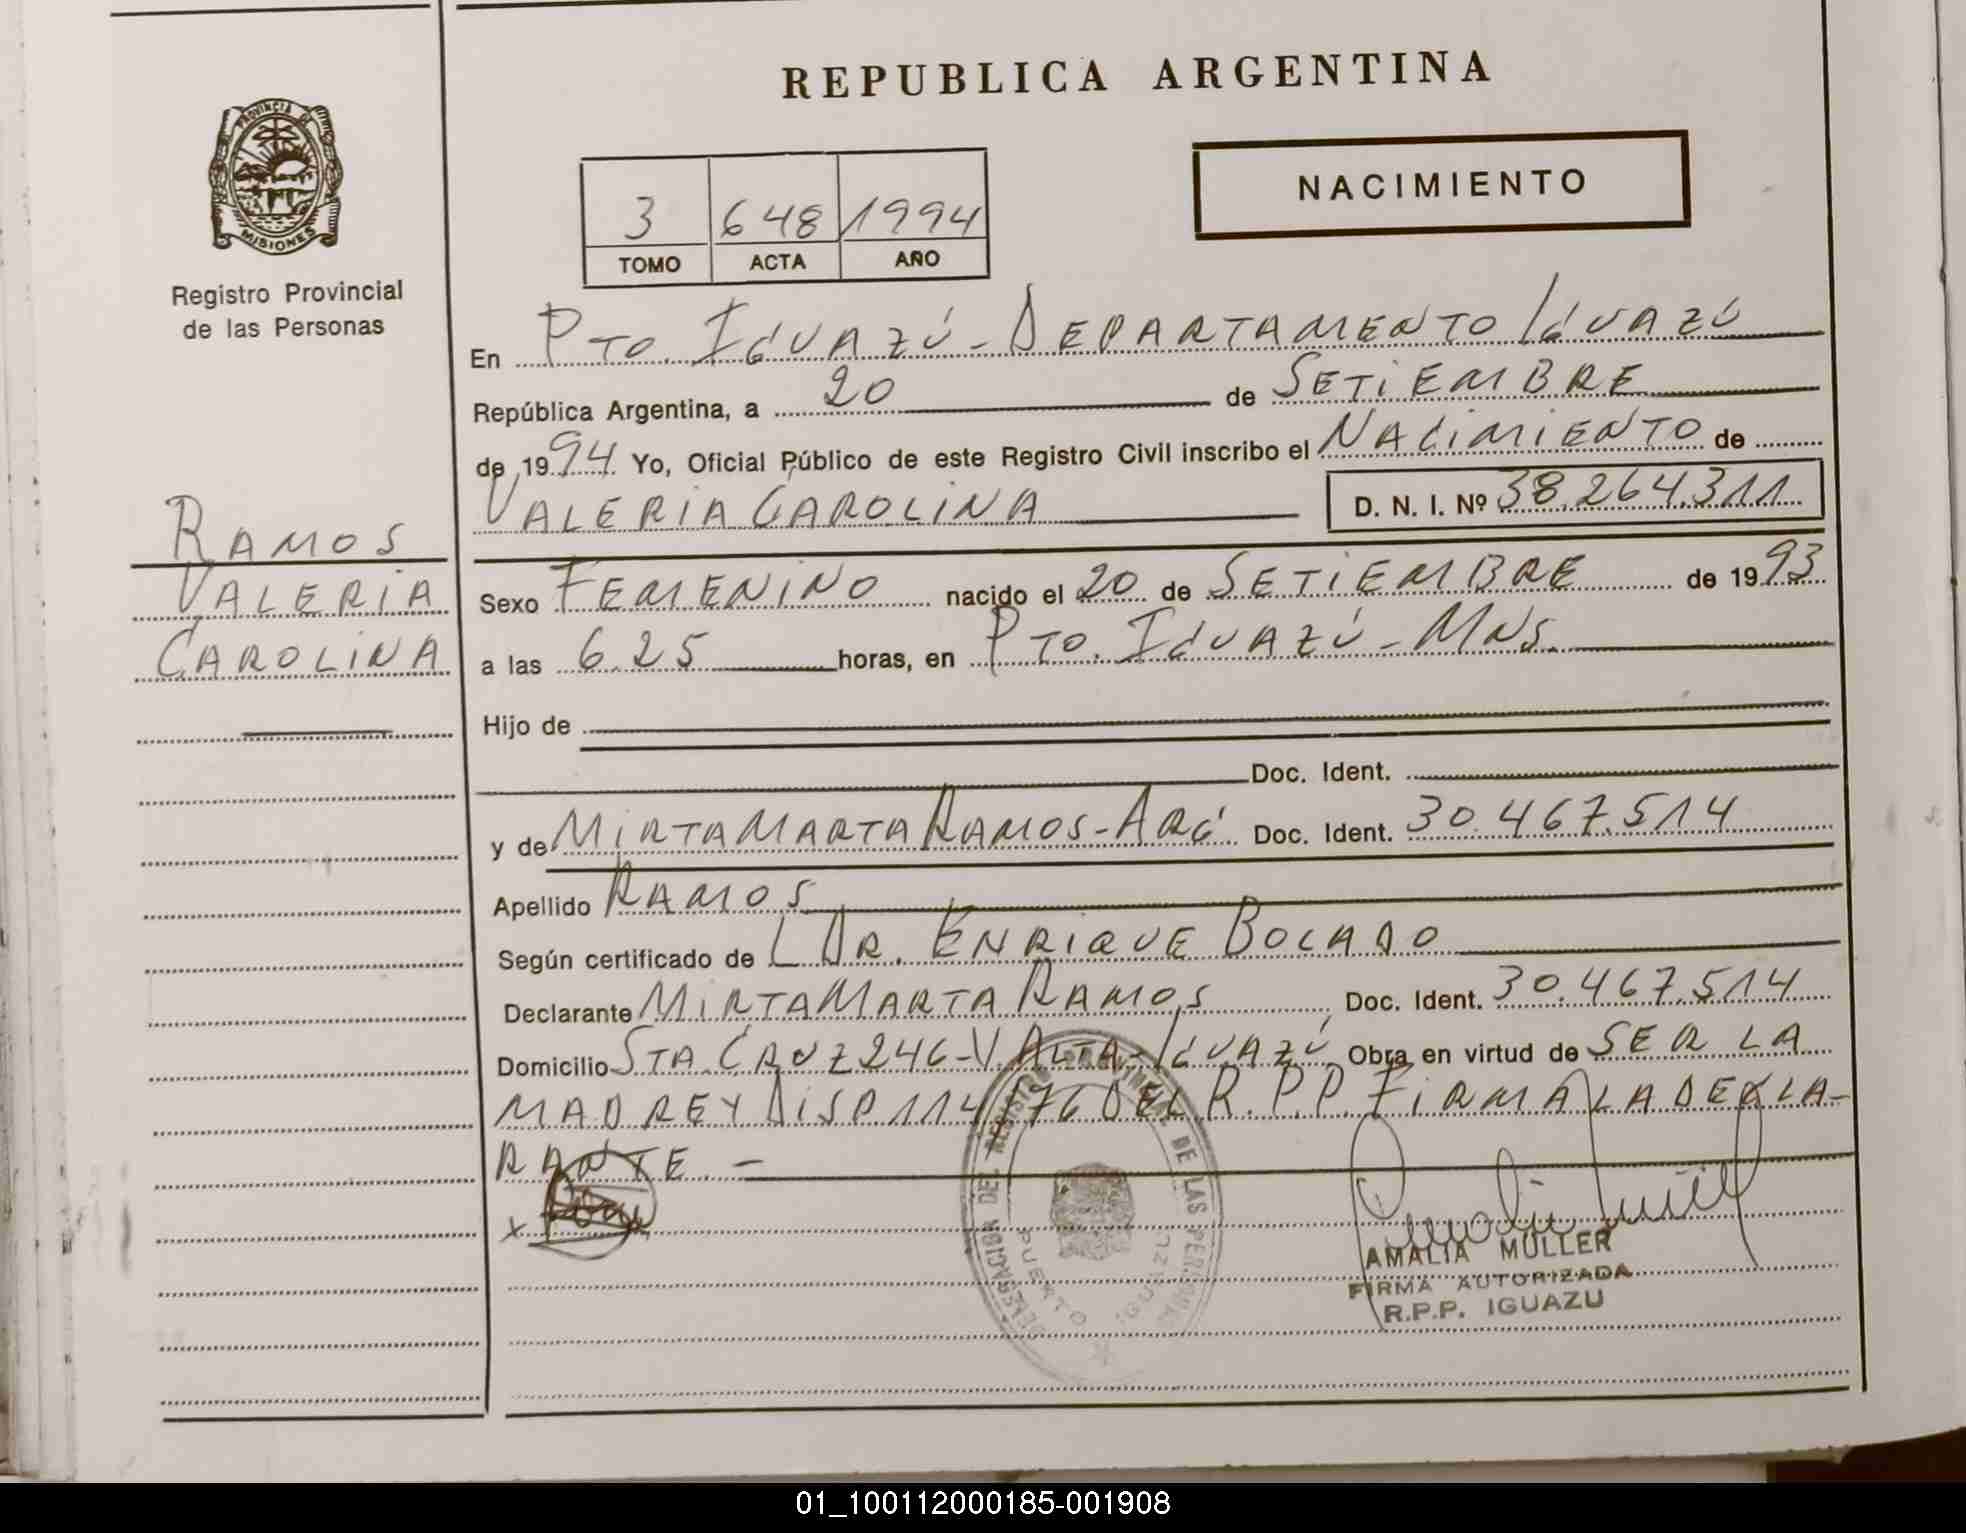 REPUBLICA ARGENTINA
PROVINCIA DE
MISIONES
Registro Provincial
de las Personas
NACIMIENTO
3 648 1994
TOMO ACTA AÑO
En Pto. Iguazú - Departamento Iguazú
República Argentina, a 20 de Setiembre
de 1994 Yo, Oficial Público de este Registro Civil inscribo el Nacimiento de
Valeria Carolina D. N. I. Nº 38.264.311
Ramos
Valeria
Carolina
Sexo Femenino nacido el 20 de Setiembre de 1993
a las 6.25 horas, en Pto. Iguazú - Mns.
Hijo de
Doc. Ident.
y de Mirta Marta Ramos - Arg. Doc. Ident. 30.467.514
Apellido Ramos
Según certificado de L Dr. Enrique Bocado
Declarante Mirta Marta Ramos Doc. Ident. 30.467.514
Domicilio Sta. Cruz 246 - V. Alta - Iguazú Obra en virtud de ser la
madre y Disp. 114/76 del R.P.P. Firma la decla-
rante. -
x
DELEGACION DEL REGISTRO PROVINCIAL DE LAS PERSONAS
PUERTO IGUAZU
AMALIA MULLER
FIRMA AUTORIZADA
R.P.P. IGUAZU
01_100112000185-001908